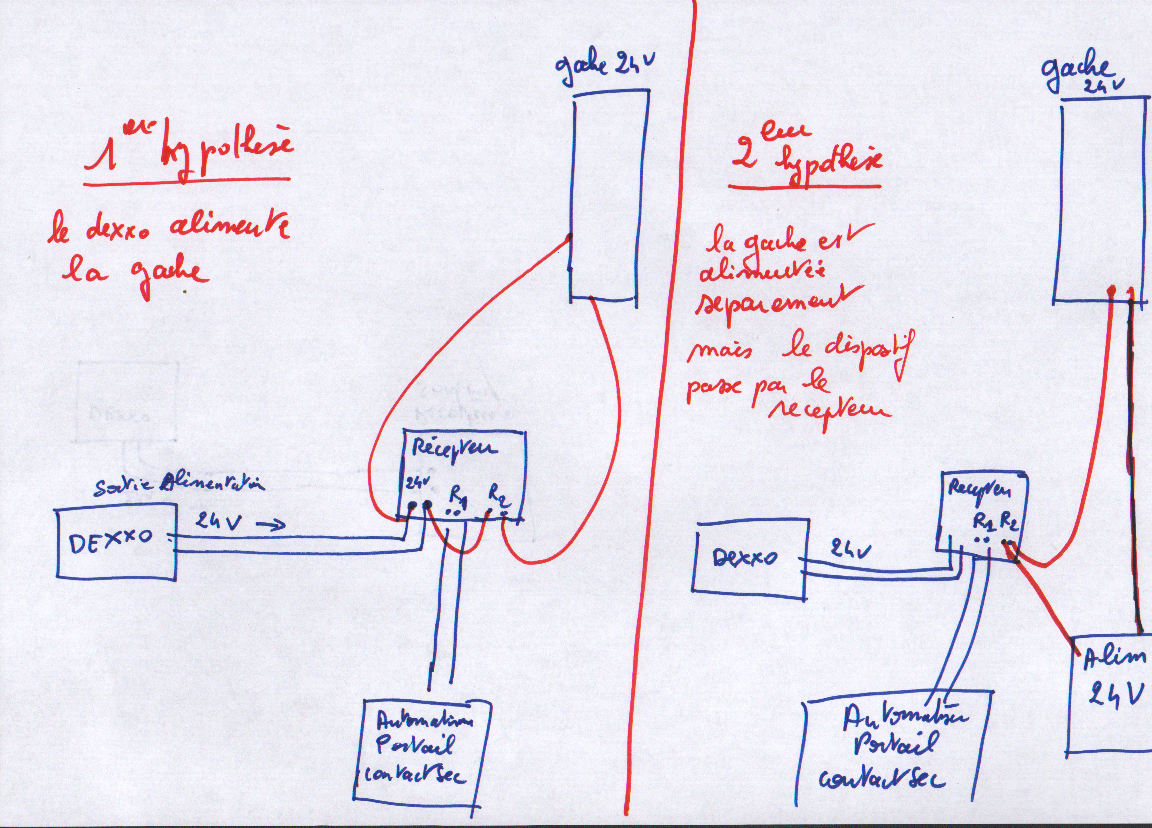 gache 24V
1ere hypothese
le dexxo alimente
la gache
Récepteur
24V
R1
R2
Sortie Alimentation
24V →
DEXXO
Automatism
Portail
contact sec
gache
24V
2eme
hypothese
la gache est
alimentée
separement
mais le dispostif
passe par le
recepteur
Recepteur
R1 R2
24V
Dexxo
Alim
24V
Portail
contact sec